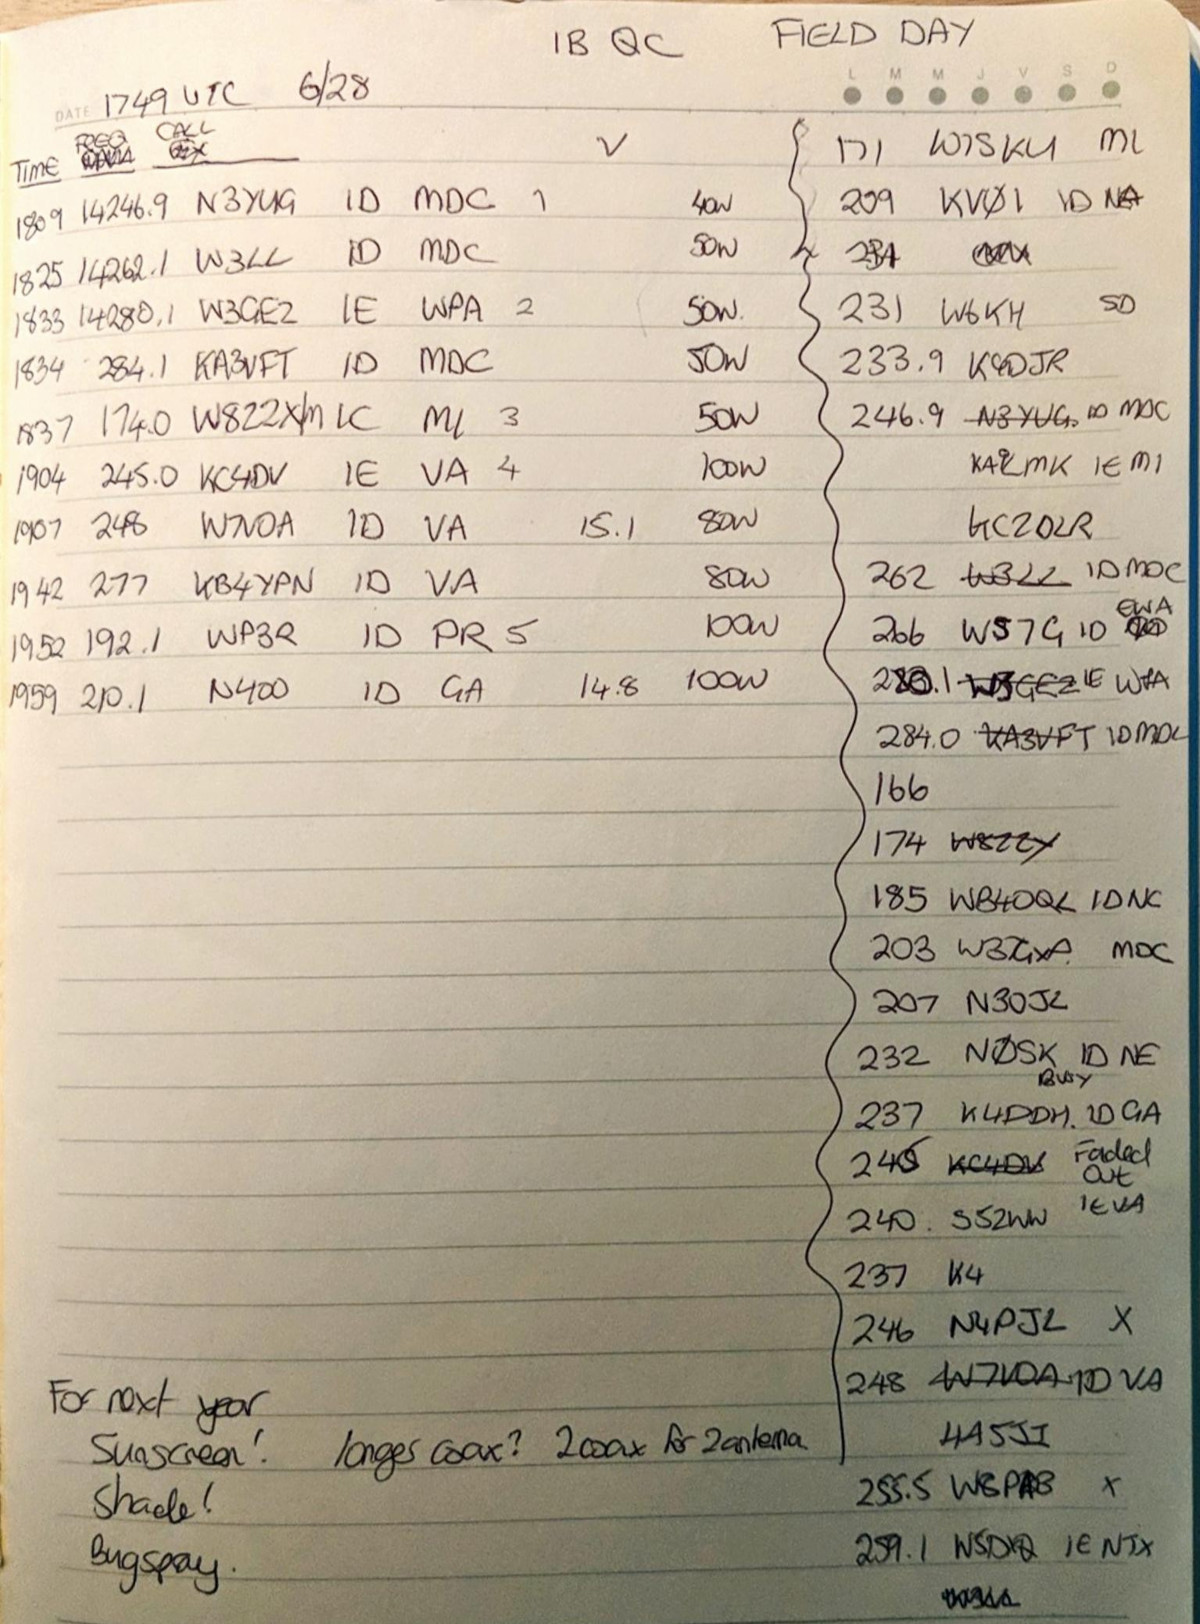 1B QC FIELD DAY
L M M J V S D
DATE 1749 UTC 6/28
TIME FREQ CALL V
1809 14246.9 N3YUG 1D MDC 1 40W
1825 14262.1 W3LL 1D MDC 50W
1833 14280.1 W3GEZ 1E WPA 2 50W.
1834 284.1 KA3VFT 1D MDC 50W
1837 174.0 W8ZZX/M 1C MI 3 50W
1904 245.0 KC4DV 1E VA 4 100W
1907 248 W7VOA 1D VA 15.1 80W
1942 277 KB4YPN 1D VA 80W
1952 192.1 WP3R 1D PR 5 100W
1959 210.1 N4OO 1D GA 14.8 100W
For next year
Sunscreen! longer coax? 2 coax for 2 antenna
Shade!
Bugspray.
171 W7SKU MI
209 KVØI 1D
231 W6KH SD
233.9 K4DJR
246.9 N3YUG. 1D MDC
1E MI
KC2DLR
262 W3LL 1D MDC
266 WS7G 1D EWA
280.1 W3GEZ 1E WPA
284.0 KA3VFT 1D MDC
166
174 W8ZZX
185 WB4OQL 1D NC
203 MDC
207 N3OJL
232 NØSK 1D NE
BUSY
237 K4DDH. 1D GA
245 KC4DV Faded Out
240. S52WW 1E VA
237 K4
246 N4PJL X
248 W7VOA 1D VA
HA5JI
255.5 X
259.1 1E NTX